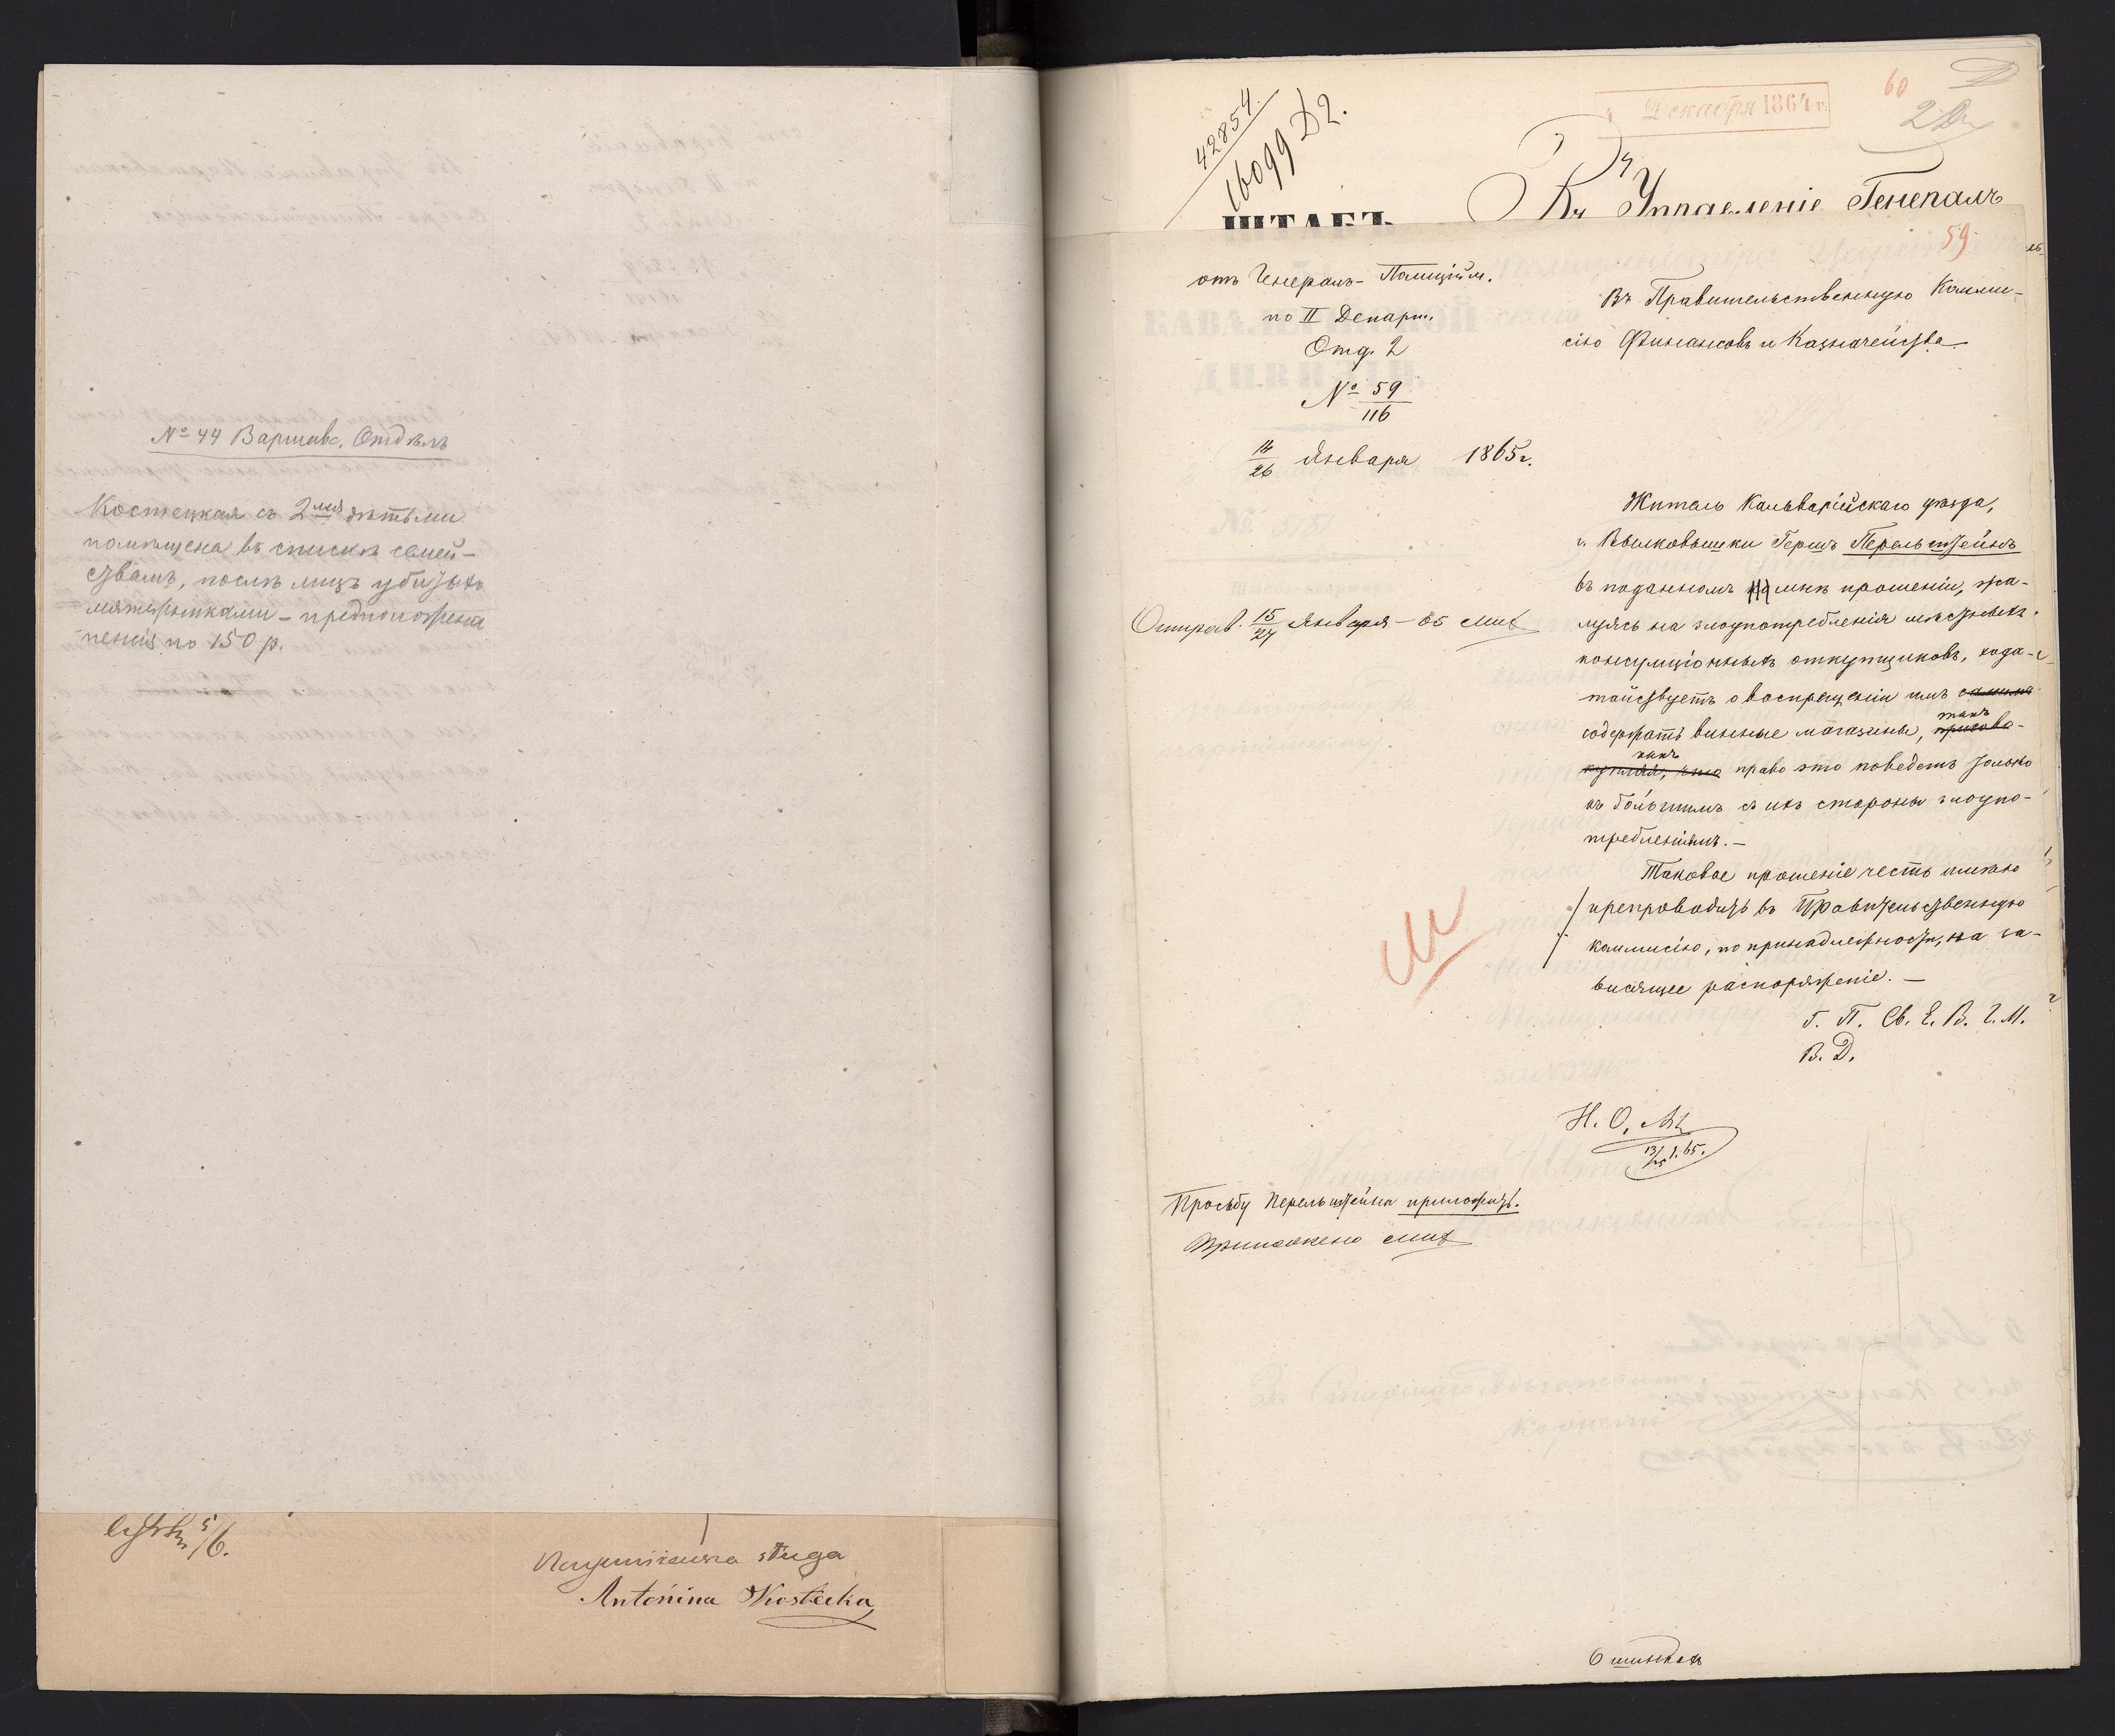 № 44 Варшавс. Отдѣлъ
Костецкая съ 2мя дѣтьми
помѣщена въ списки семей-
ствамъ, послѣ лицъ убитыхъ
мятежниками – предположена
пенсія по 150 р.
5/6.
sługa
Antonina Kostecka
42854
16099 Д2.
Декабря 1864 г.
60
ШТАБЪ
Въ Управленіе Генералъ
59
отъ Генералъ-Полиційм.
по II Департ.
Отд. 2
№ 59/116
14/26 Января 1865 г.
Въ Правительственную Комми-
сію Финансовъ и Казначейства
Отправ. 15/27 Января – 65
Житель Кальварійскаго уѣзда,
г. Вылковышки Гершъ Перельштейнъ
въ поданномъ мнѣ прошеніи, жа-
луясь на злоупотребленія мѣстныхъ
консумціонныхъ откупщиковъ, хода-
тайствуетъ о воспрещеніи имъ
содержать винные магазины, такъ
какъ право это поведетъ только
къ большимъ съ ихъ стороны злоупо-
требленіямъ. –
Таковое прошеніе честь имѣю
препроводить въ Правительственную
коммисію, по принадлежности, на за-
висящее распоряженіе. –
Г. П. Св. Е. В. Г. М.
В. Д.
Н. О.
13/25 1. 65.
Просьбу Перельштейна приложить.
Приложено